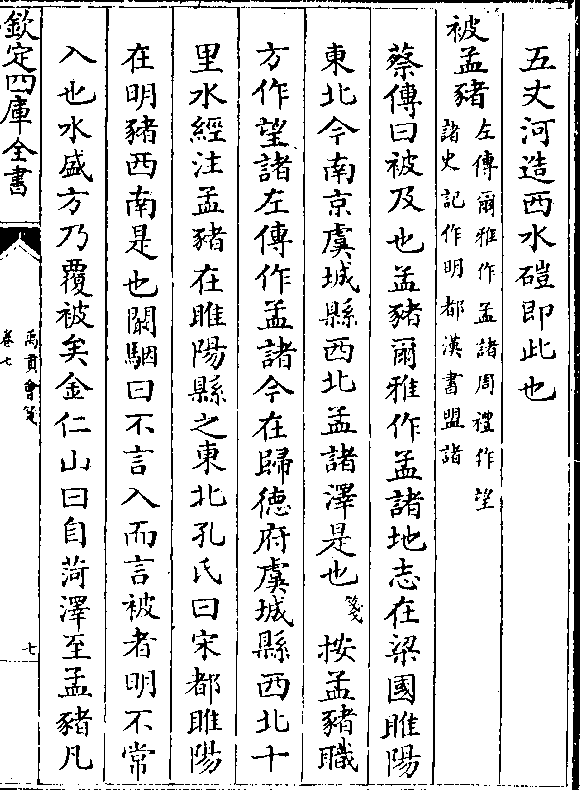 五丈河造西水磑即此也
被孟豬左傳爾雅作孟諸周禮作望
諸史記作明都漢書盟諸
蔡傳曰被及也孟豬爾雅作孟諸地志在梁國睢陽
東北今南京虞城縣西北孟諸澤是也箋按孟豬職
方作望諸左傳作孟諸今在歸徳府虞城縣西北十
里水經注孟豬在睢陽縣之東北孔氏曰宋都睢陽
在明豬西南是也闞駰曰不言入而言被者明不常
入也水盛方乃覆被矣金仁山曰自菏澤至孟豬凡
欽定四庫全書
禹貢會箋
卷七
七